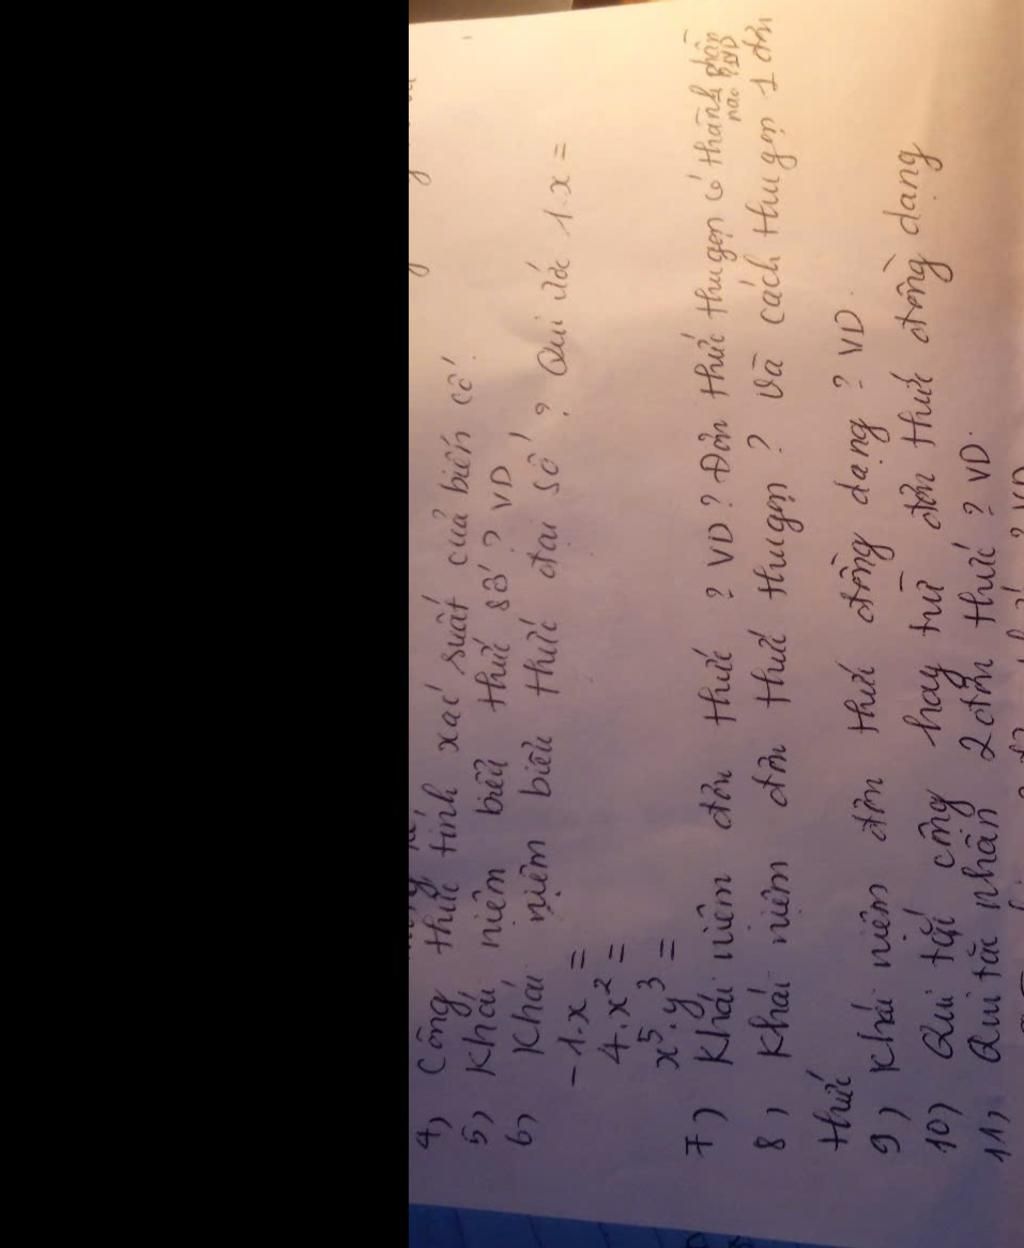 4) Công thức tính xác suất của biến cố.
5) Khái niệm biểu thức số? VD
6) Khái niệm biểu thức đại số? Qui ước 1.x =
-1.x =
4.x² =
x⁵.y³ =
7) Khái niệm đơn thức? VD? Đơn thức thu gọn có thành phần nào? VD
8) Khái niệm đơn thức thu gọn? Và cách thu gọn 1 đơn
thức
9) Khái niệm đơn thức đồng dạng? VD.
10) Qui tắc cộng hay trừ đơn thức đồng dạng
11) Qui tắc nhân 2 đơn thức? VD.